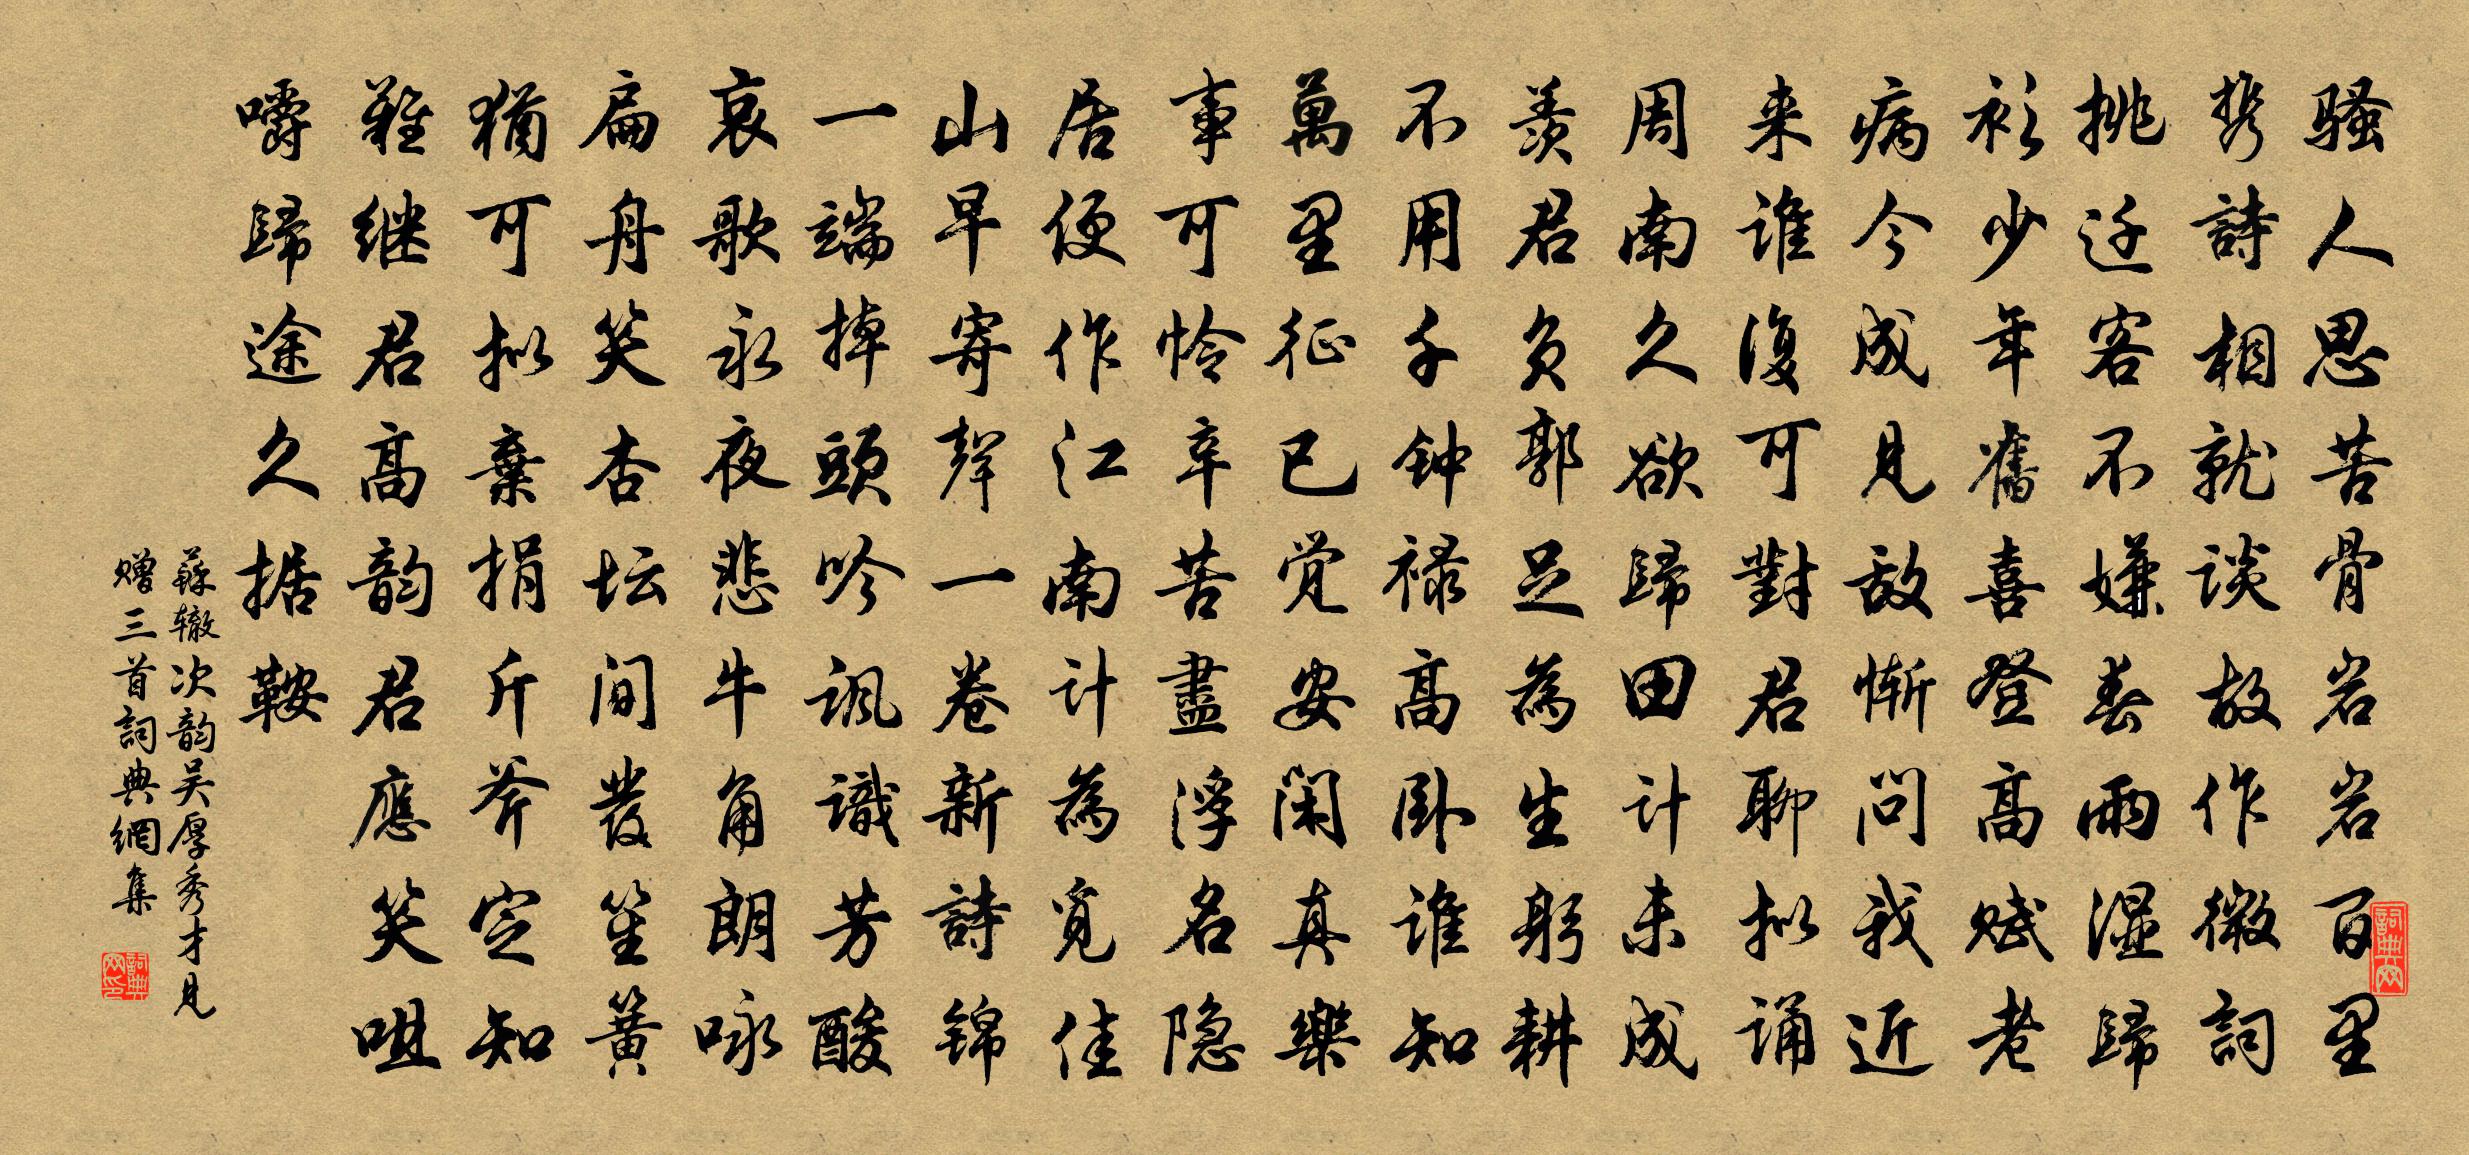 骚人思苦骨岩岩百里
携詩相就谈故作微詞
挑迁客不嫌春雨湿歸
衫少年舊喜登高赋老
病今成见敌惭问我近
来谁復可對君聊拟诵
周南久欲歸田计未成
羡君负郭足為生躬耕
不用千钟禄高卧谁知
萬里征已觉安闲真樂
事可怜辛苦盡浮名隐
居便作江南计為觅佳
山早寄聲一卷新詩锦
一端掉頭吟讽識芳酸
哀歌永夜悲牛角朗咏
扁舟笑杏坛间發笙簧
猶可拟棄捐斤斧定知
難继君高韵君應笑咀
嚼歸途久据鞍
蘇辙次韵吴厚秀才见
赠三首詞典網集
詞典网
詞典网印